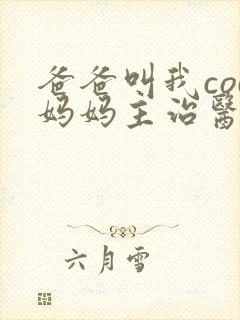 爸爸叫我co
妈妈主治醫
六月雪